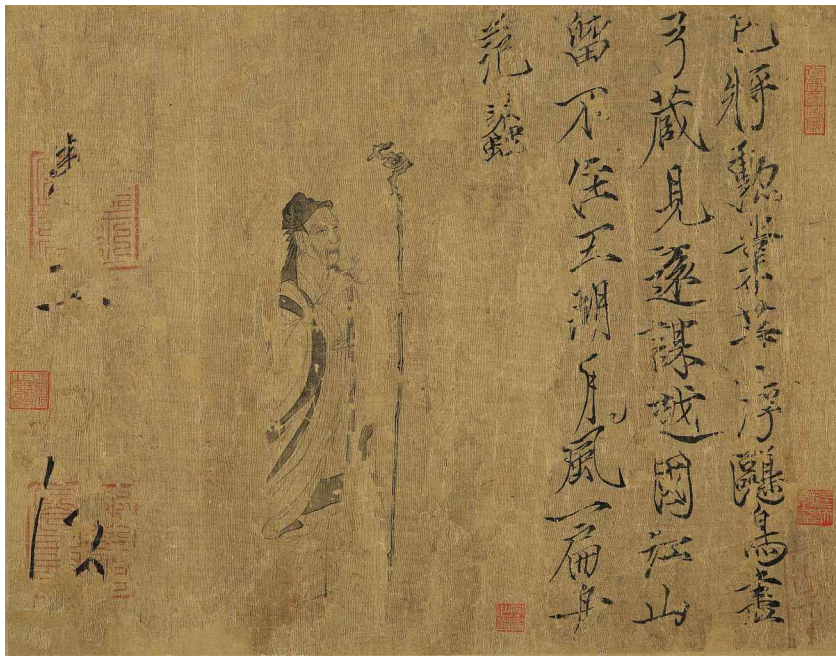 已將勲業等浮鷗鳥盡
弓藏見遠謀越國江山
留不住五湖月風一扁舟
范蠡